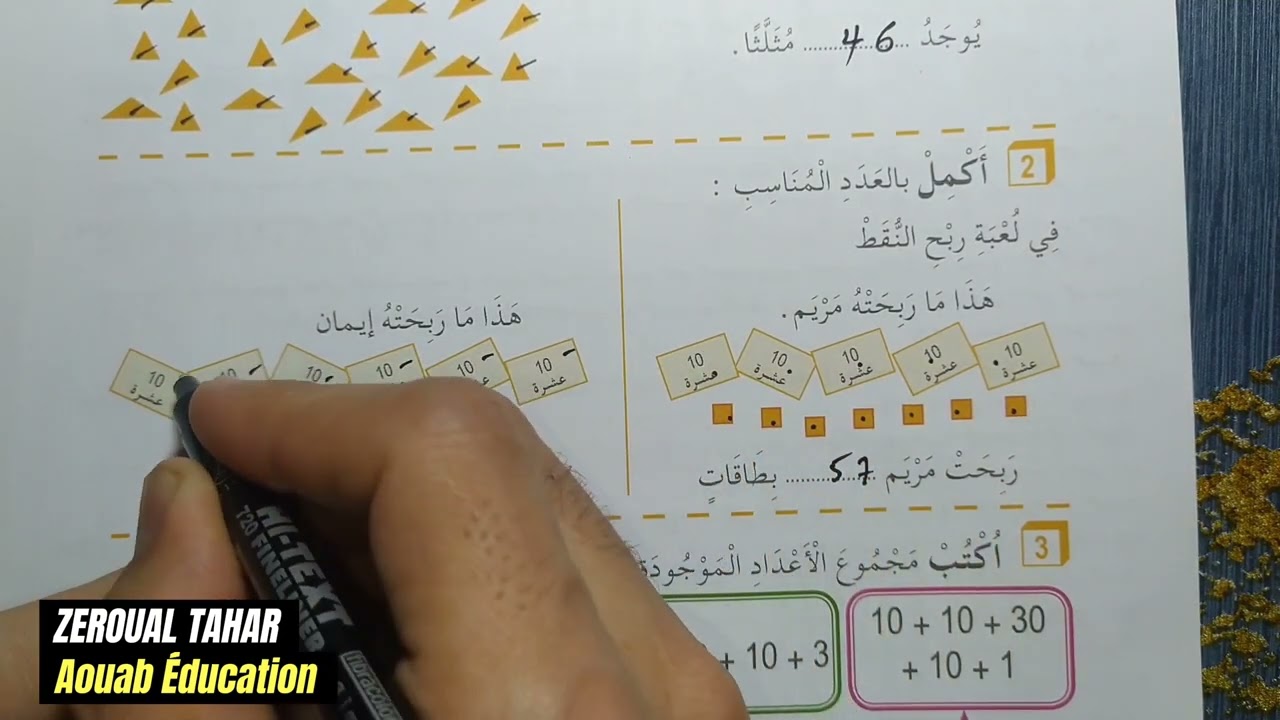 يُوجَدُ ........46........ مُثَلَّثًا.
2 أَكْمِلْ بالعَدَدِ الْمُنَاسِبِ :
فِي لُعْبَةِ رِبْحِ النُّقَطْ
هَذَا مَا رَبِحَتْهُ مَرْيَم.
10 عشرة
10 عشرة
10 عشرة
10 عشرة
10 عشرة
رَبِحَتْ مَرْيَم ........57........ بِطَاقَاتٍ
هَذَا مَا رَبِحَتْهُ إيمان
10 عشرة
10
10
10
10
10 عشرة
3 اُكْتُبْ مَجْمُوعَ الْأَعْدَادِ الْمَوْجُودَة
10 + 10 + 30
+ 10 + 1
+ 10 + 3
HI-TEXT
720 FINELINER
fibracolor
ZEROUAL TAHAR
Aouab Éducation